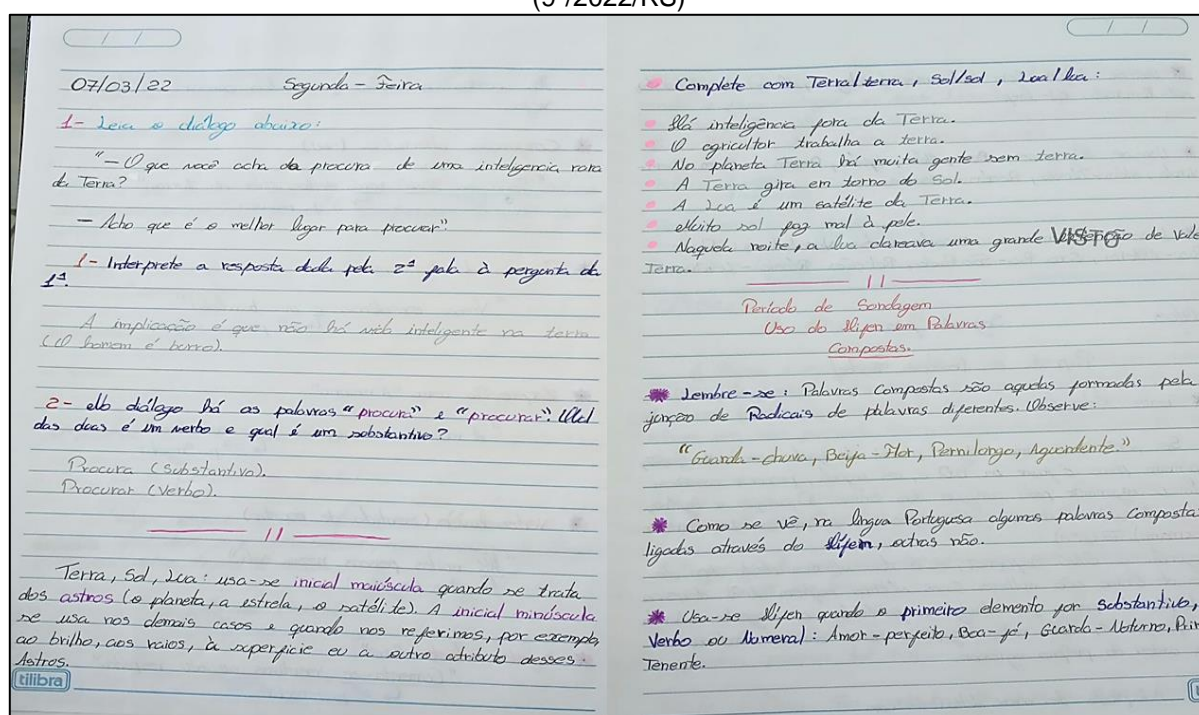 (5ª/2022/RS)
07/03/22 Segunda-Feira
1- Leia o diálogo abaixo:
"- O que você acha da procura de uma inteligencia rora
da Terra?
- Acho que é o melhor lugar para procurar".
1- Interprete a resposta dada pela 2ª fala à pergunta da
1ª.
A implicação é que não há inteligente na terra
(O homem é burro).
2- No diálogo há as palavras "procura" e "procurar". Qual
das duas é um verbo e qual é um substantivo?
Procura (substantivo).
Procurar (verbo).
Terra, Sol, Lua: usa-se inicial maiúscula quando se trata
dos astros (o planeta, a estrela, o satélite). A inicial minúscula
se usa nos demais casos e quando nos referimos, por exemplo,
ao brilho, aos raios, à superfície ou a outro atributo desses
Astros.
tilibra
Complete com Terra/terra, Sol/sol, Lua/lua:
Há inteligência fora da Terra.
O agricultor trabalha a terra.
No planeta Terra há muita gente sem terra.
A Terra gira em torno do Sol.
A Lua é um satélite da Terra.
Muito sol faz mal à pele.
Naquela noite, a lua clareava uma grande VISTO de
Terra.
Período de Sondagem
Uso do Hífen em Palavras
Compostas.
Lembre-se: Palavras Compostas são aquelas formadas pela
junção de Radicais de palavras diferentes. Observe:
"Guarda-chuva, Beija-Flor, Pernilongo, Aguardente."
Como se vê, na língua Portuguesa algumas palavras composta
ligadas através do Hífem, outras não.
Usa-se Hífen quando o primeiro elemento for Substantivo,
Verbo ou Numeral: Amor-perfeito, Boa-fé, Guarda-Noturno,
Tenente.